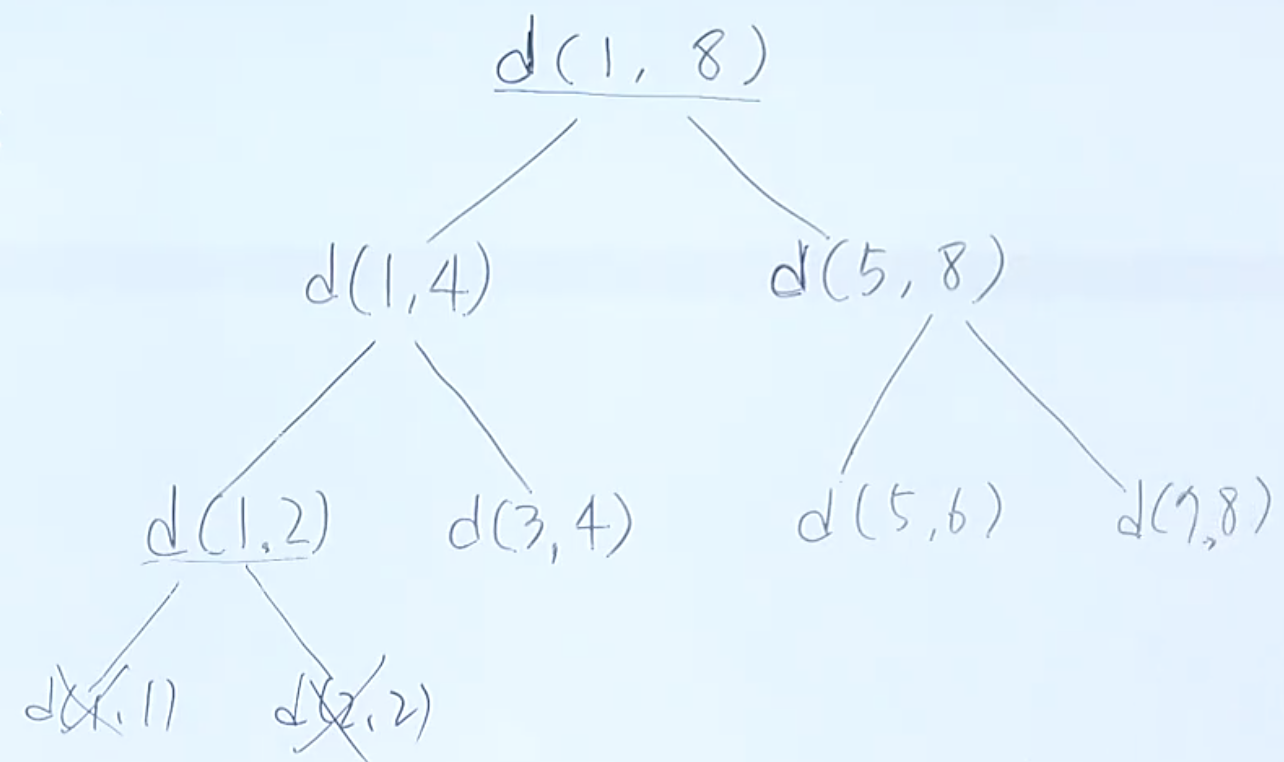 d(1, 8)
d(1,4) d(5, 8)
d(1,2) d(3,4) d(5,6) d(7,8)
d(1,1) d(2,2)